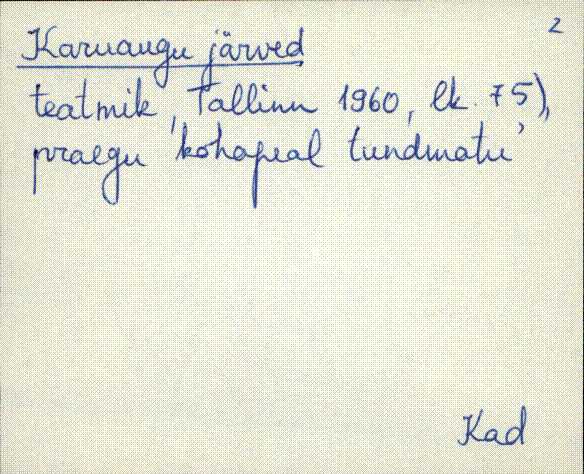 2
Karuaugu järved
teatmik, Tallinn 1960, lk. 75),
praegu kohapeal tundmatu
Kad